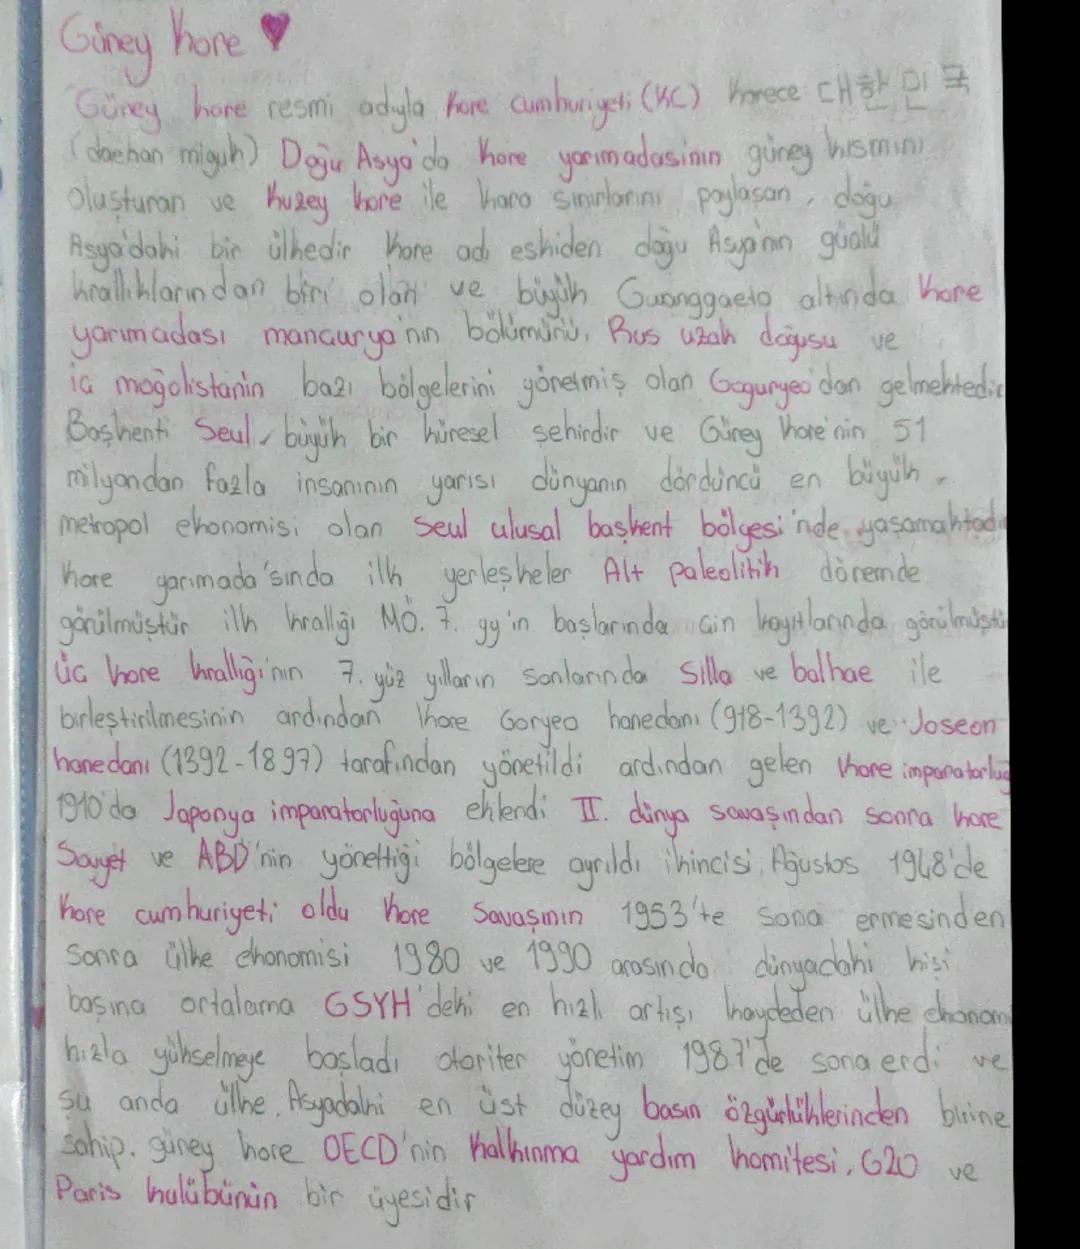 Güney kore ♥
Güney kore resmi adıyla kore cumhuriyeti (KC) korece 대한민국
(daehan miguk) Doğu Asya'da kore yarımadasının güney kısmını
oluşturan ve kuzey kore ile kara sınırlarını paylaşan, doğu
Asya'daki bir ülkedir kore adı eskiden doğu Asya'nın güçlü
krallıklarından biri olan ve büyük Gwanggaeto altında kore
yarımadası mançurya'nın bölümünü, Rus uzak doğusu ve
iç moğolistanin bazı bölgelerini yönetmiş olan Goguryeo'dan gelmektedir
Başkenti Seul, büyük bir küresel şehirdir ve Güney kore'nin 51
milyondan fazla insanının yarısı dünyanın dördüncü en büyük
metropol ekonomisi olan Seul ulusal başkent bölgesi'nde yaşamaktadı
kore yarımada'sında ilk yerleşkeler Alt paleolitik dönemde
görülmüştür ilk krallığı MÖ. 7. yy'ın başlarında çin kayıtlarında görülmüştü
üç kore krallığı'nın 7. yüz yılların sonlarında Silla ve balhae ile
birleştirilmesinin ardından kore Goryeo hanedanı (918-1392) ve Joseon
hanedanı (1392-1897) tarafından yönetildi ardından gelen kore imparatorluğ
1910'da Japonya imparatorluğuna eklendi II. dünya savaşından sonra kore
Sovyet ve ABD'nin yönettiği bölgelere ayrıldı ikincisi, Ağustos 1948'de
kore cumhuriyeti oldu kore Savaşının 1953'te sona ermesinden
sonra ülke ekonomisi 1980 ve 1990 arasında dünyadaki kişi
başına ortalama GSYH'deki en hızlı artışı kaydeden ülke ekonom
hızla yükselmeye başladı otoriter yönetim 1987'de sona erdi ve
şu anda ülke, Asyadaki en üst düzey basın özgürlüklerinden birine
sahip. güney kore OECD'nin kalkınma yardım komitesi, G20 ve
Paris kulübünün bir üyesidir